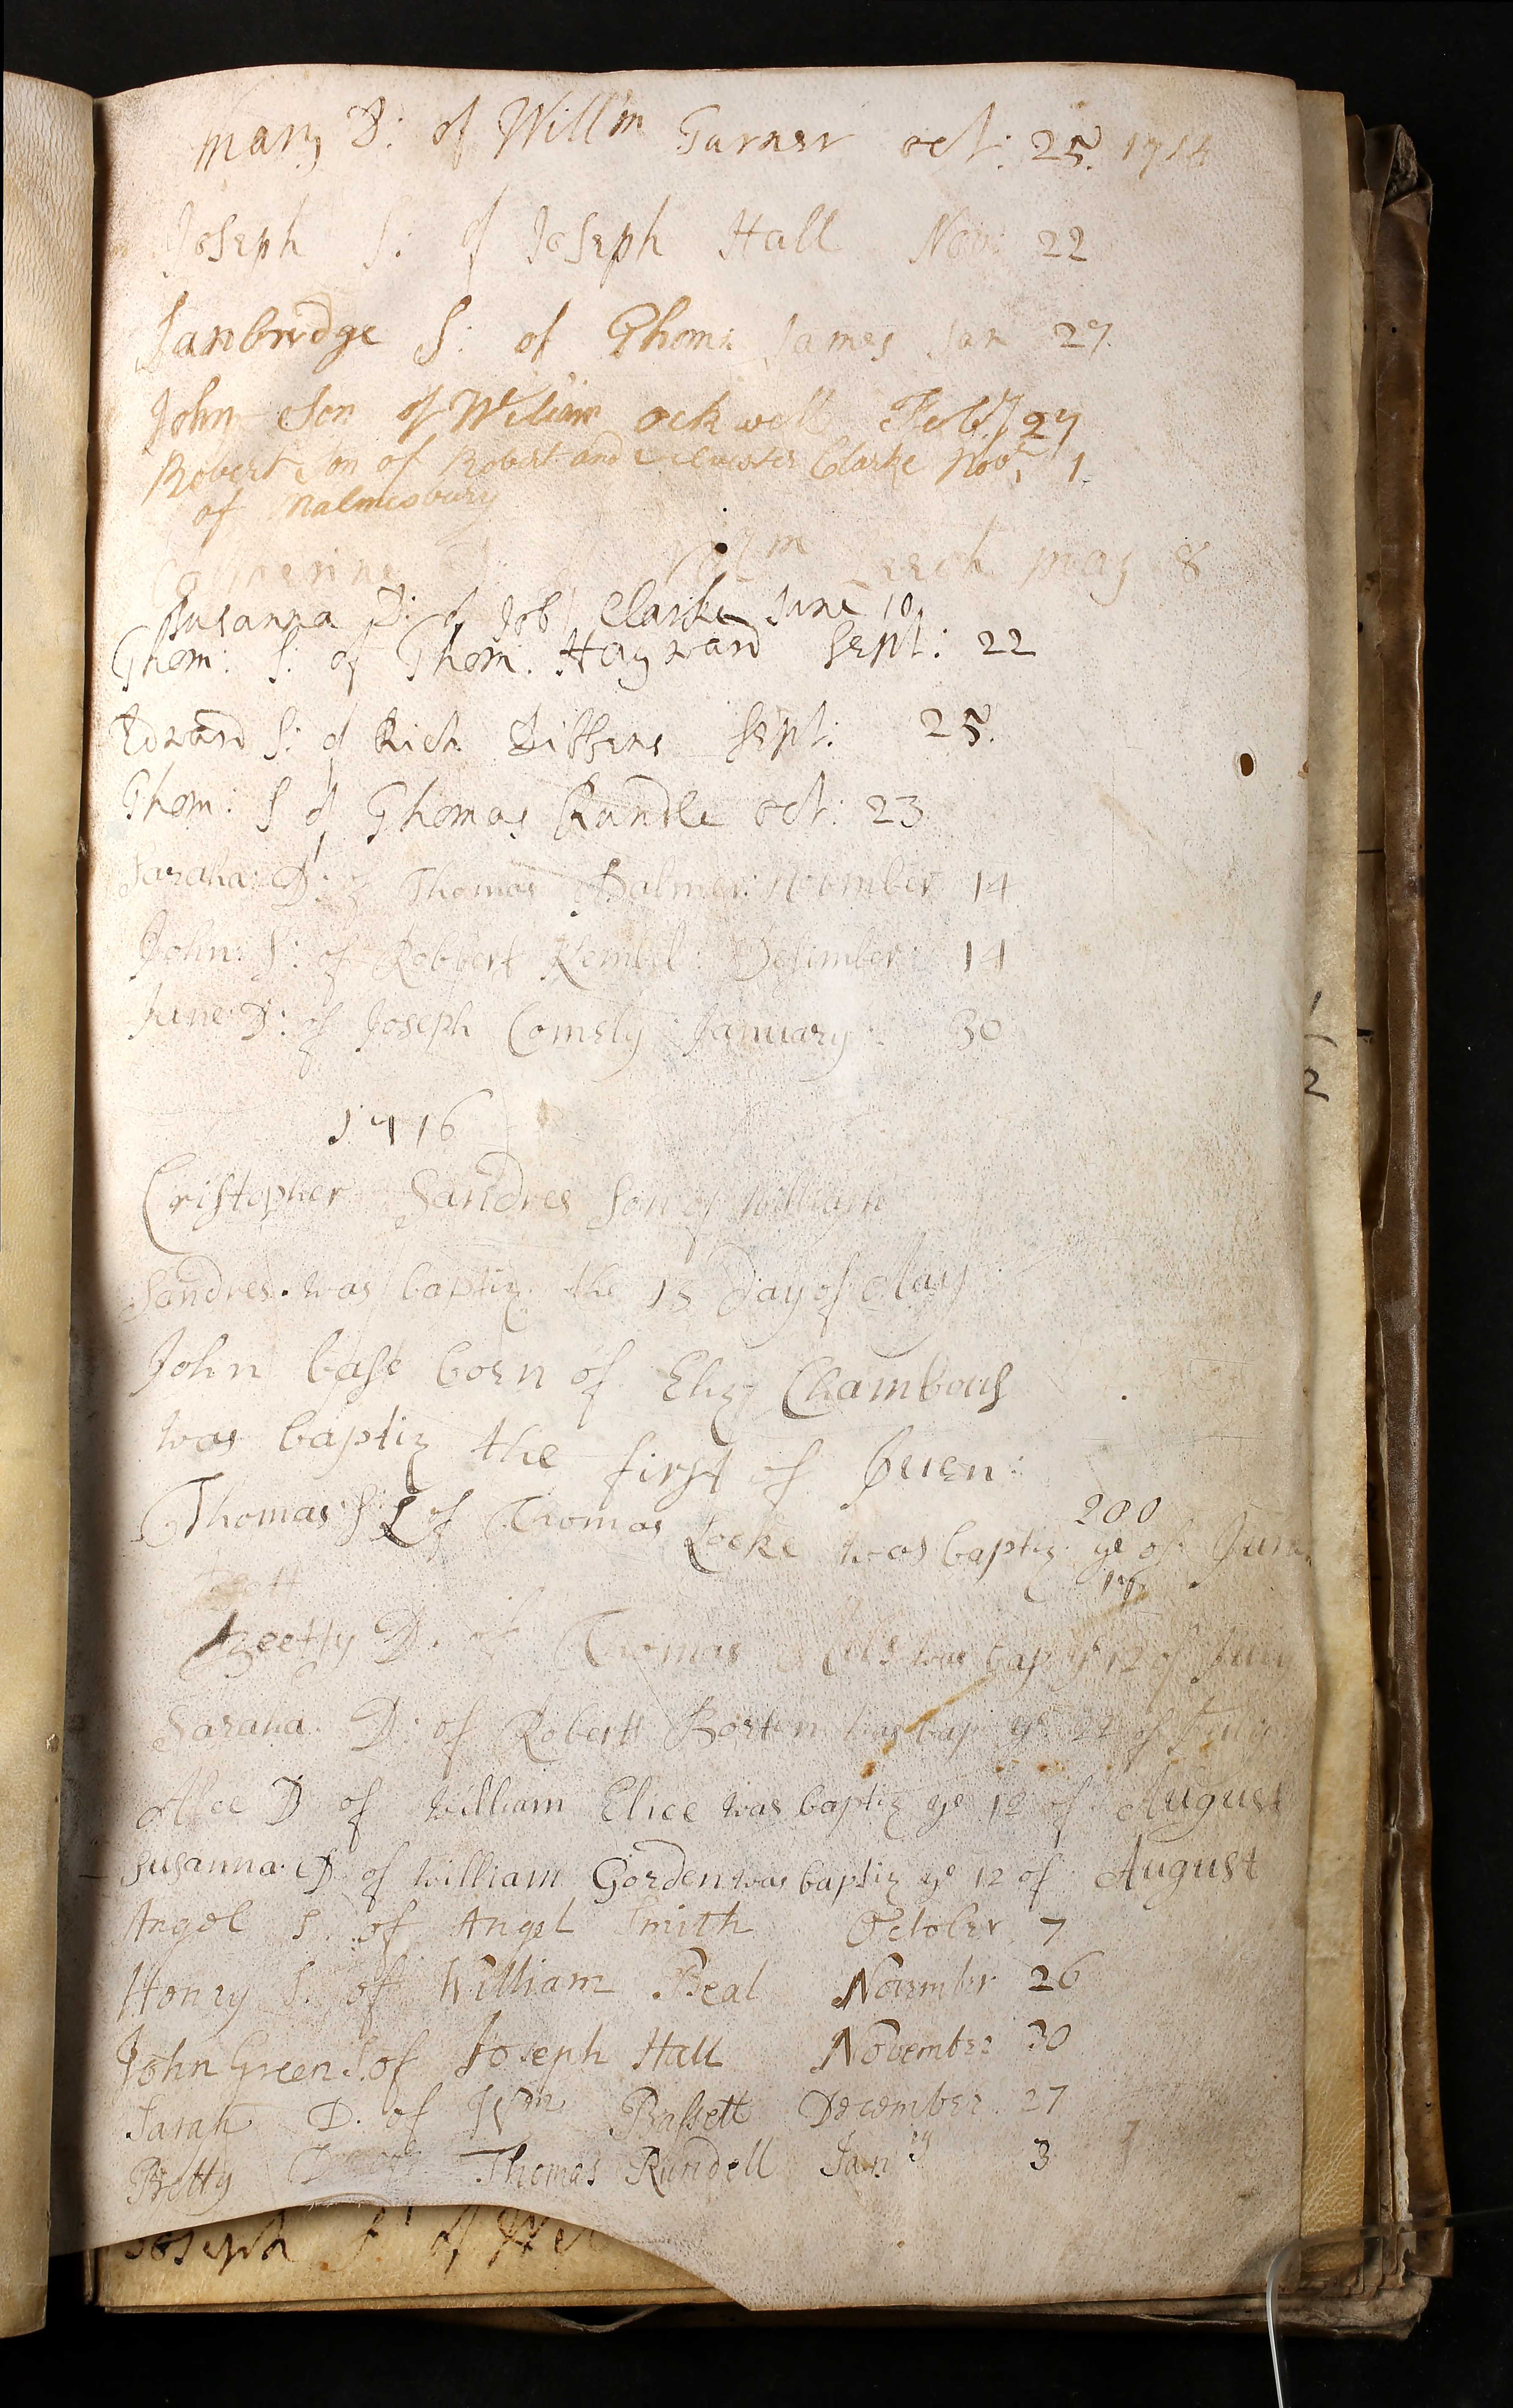 Mary D: of Will'm Garner oct: 25. 1714
Joseph S: of Joseph Hall Nov: 22
Sanbridge S: of Thom: James Jan 27
John Son of William ockwell Feb.ry 27
Robert Son of Robert and Clarke Novr 1.
of Malmesbury
Catherine Will'm may 8
Susanna D: of Job Clarke June 10
Thom: S: of Thom: Hayward Sept: 22
Edward S: of Rich Sept: 25.
Thom: S of Thomas Rundle oct: 23
Saraha: D: of Thomas Palmer: Novmber 14
John: S: of Robbert Kembel: Desimber: 14
June D: of Joseph Comely January: 30
1716
Cristopher Sandres Son of William
Sandres was baptiz the 13 Day of May
John base born of Eliz Chambous
was baptiz the first of Juen:
200
Thomas S: of Thomas Locke was baptiz ye of June
17
Beetty D. of Thomas was bap ye 12 of July
Saraha D: of Robert Borten was bap ye 22 of July
Alce D of William Elice was baptiz ye 12 of August
Susanna: D of William Gorden was baptiz ye 12 of August
Angel S. of Angel Smith October 7
Henry S. of William Beal Novembr 26
John Green S. of Joseph Hall November 30
Sarah D. of Wm Bassett December 27
Betty D of Thomas Rundell Janry 3
Joseph S: of